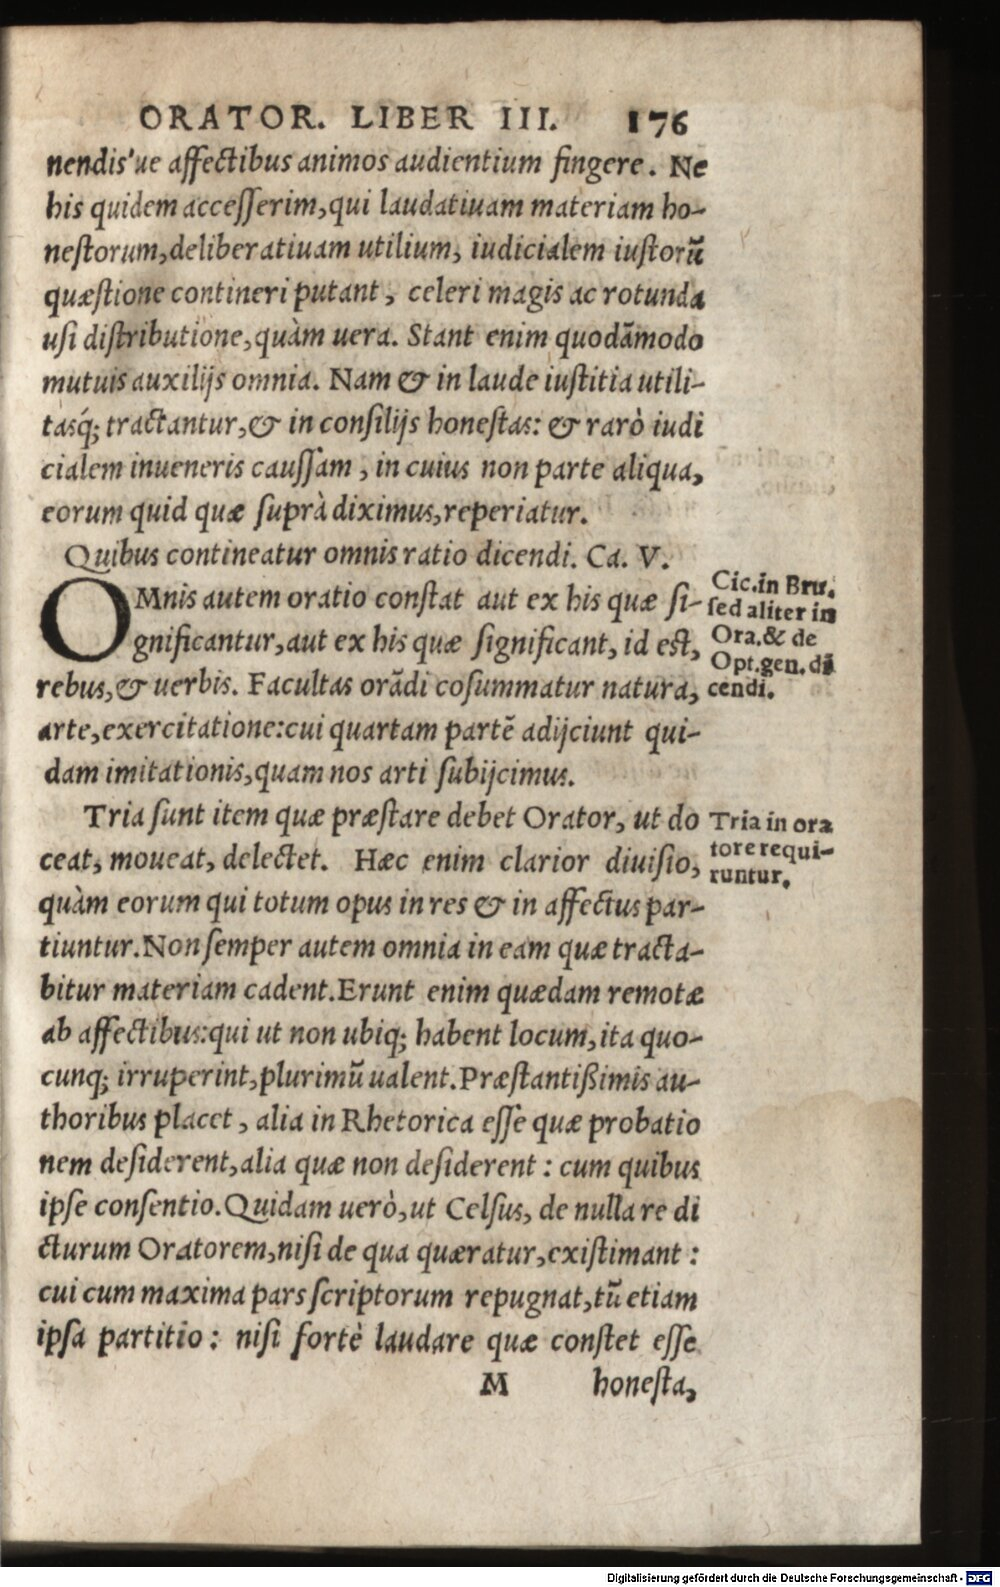 ORATOR. LIBER III. 176
nendis'ue affectibus animos audientium fingere. Ne
his quidem accesserim, qui laudatiuam materiam ho-
nestorum, deliberatiuam utilium, iudicialem iustorũ
quæstione contineri putant, celeri magis ac rotunda
usi distributione, quàm uera. Stant enim quodãmodo
mutuis auxilijs omnia. Nam & in laude iustitia utili-
tasq́; tractantur, & in consilijs honestas: & rarò iudi
cialem inueneris caussam, in cuius non parte aliqua,
eorum quid quæ suprà diximus, reperiatur.
Quibus contineatur omnis ratio dicendi. Ca. V.
OMnis autem oratio constat aut ex his quæ si-
gnificantur, aut ex his quæ significant, id est,
rebus, & uerbis. Facultas orãdi cosummatur natura,
arte, exercitatione: cui quartam partẽ adijciunt qui-
dam imitationis, quam nos arti subijcimus.
Cic. in Bru.
sed aliter in
Ora. & de
Opt. gen. di
cendi.
Tria sunt item quæ præstare debet Orator, ut do
ceat, moueat, delectet. Hæc enim clarior diuisio,
quàm eorum qui totum opus in res & in affectus par-
tiuntur. Non semper autem omnia in eam quæ tracta-
bitur materiam cadent. Erunt enim quædam remotæ
ab affectibus: qui ut non ubiq; habent locum, ita quo-
cunq; irruperint, plurimũ ualent. Præstantißimis au-
thoribus placet, alia in Rhetorica esse quæ probatio
nem desiderent, alia quæ non desiderent: cum quibus
ipse consentio. Quidam uerò, ut Celsus, de nulla re di
cturum Oratorem, nisi de qua quæratur, existimant:
cui cum maxima pars scriptorum repugnat, tũ etiam
ipsa partitio: nisi fortè laudare quæ constet esse
Tria in ora
tore requi-
runtur.
M honesta,
Digitalisierung gefördert durch die Deutsche Forschungsgemeinschaft - DFG